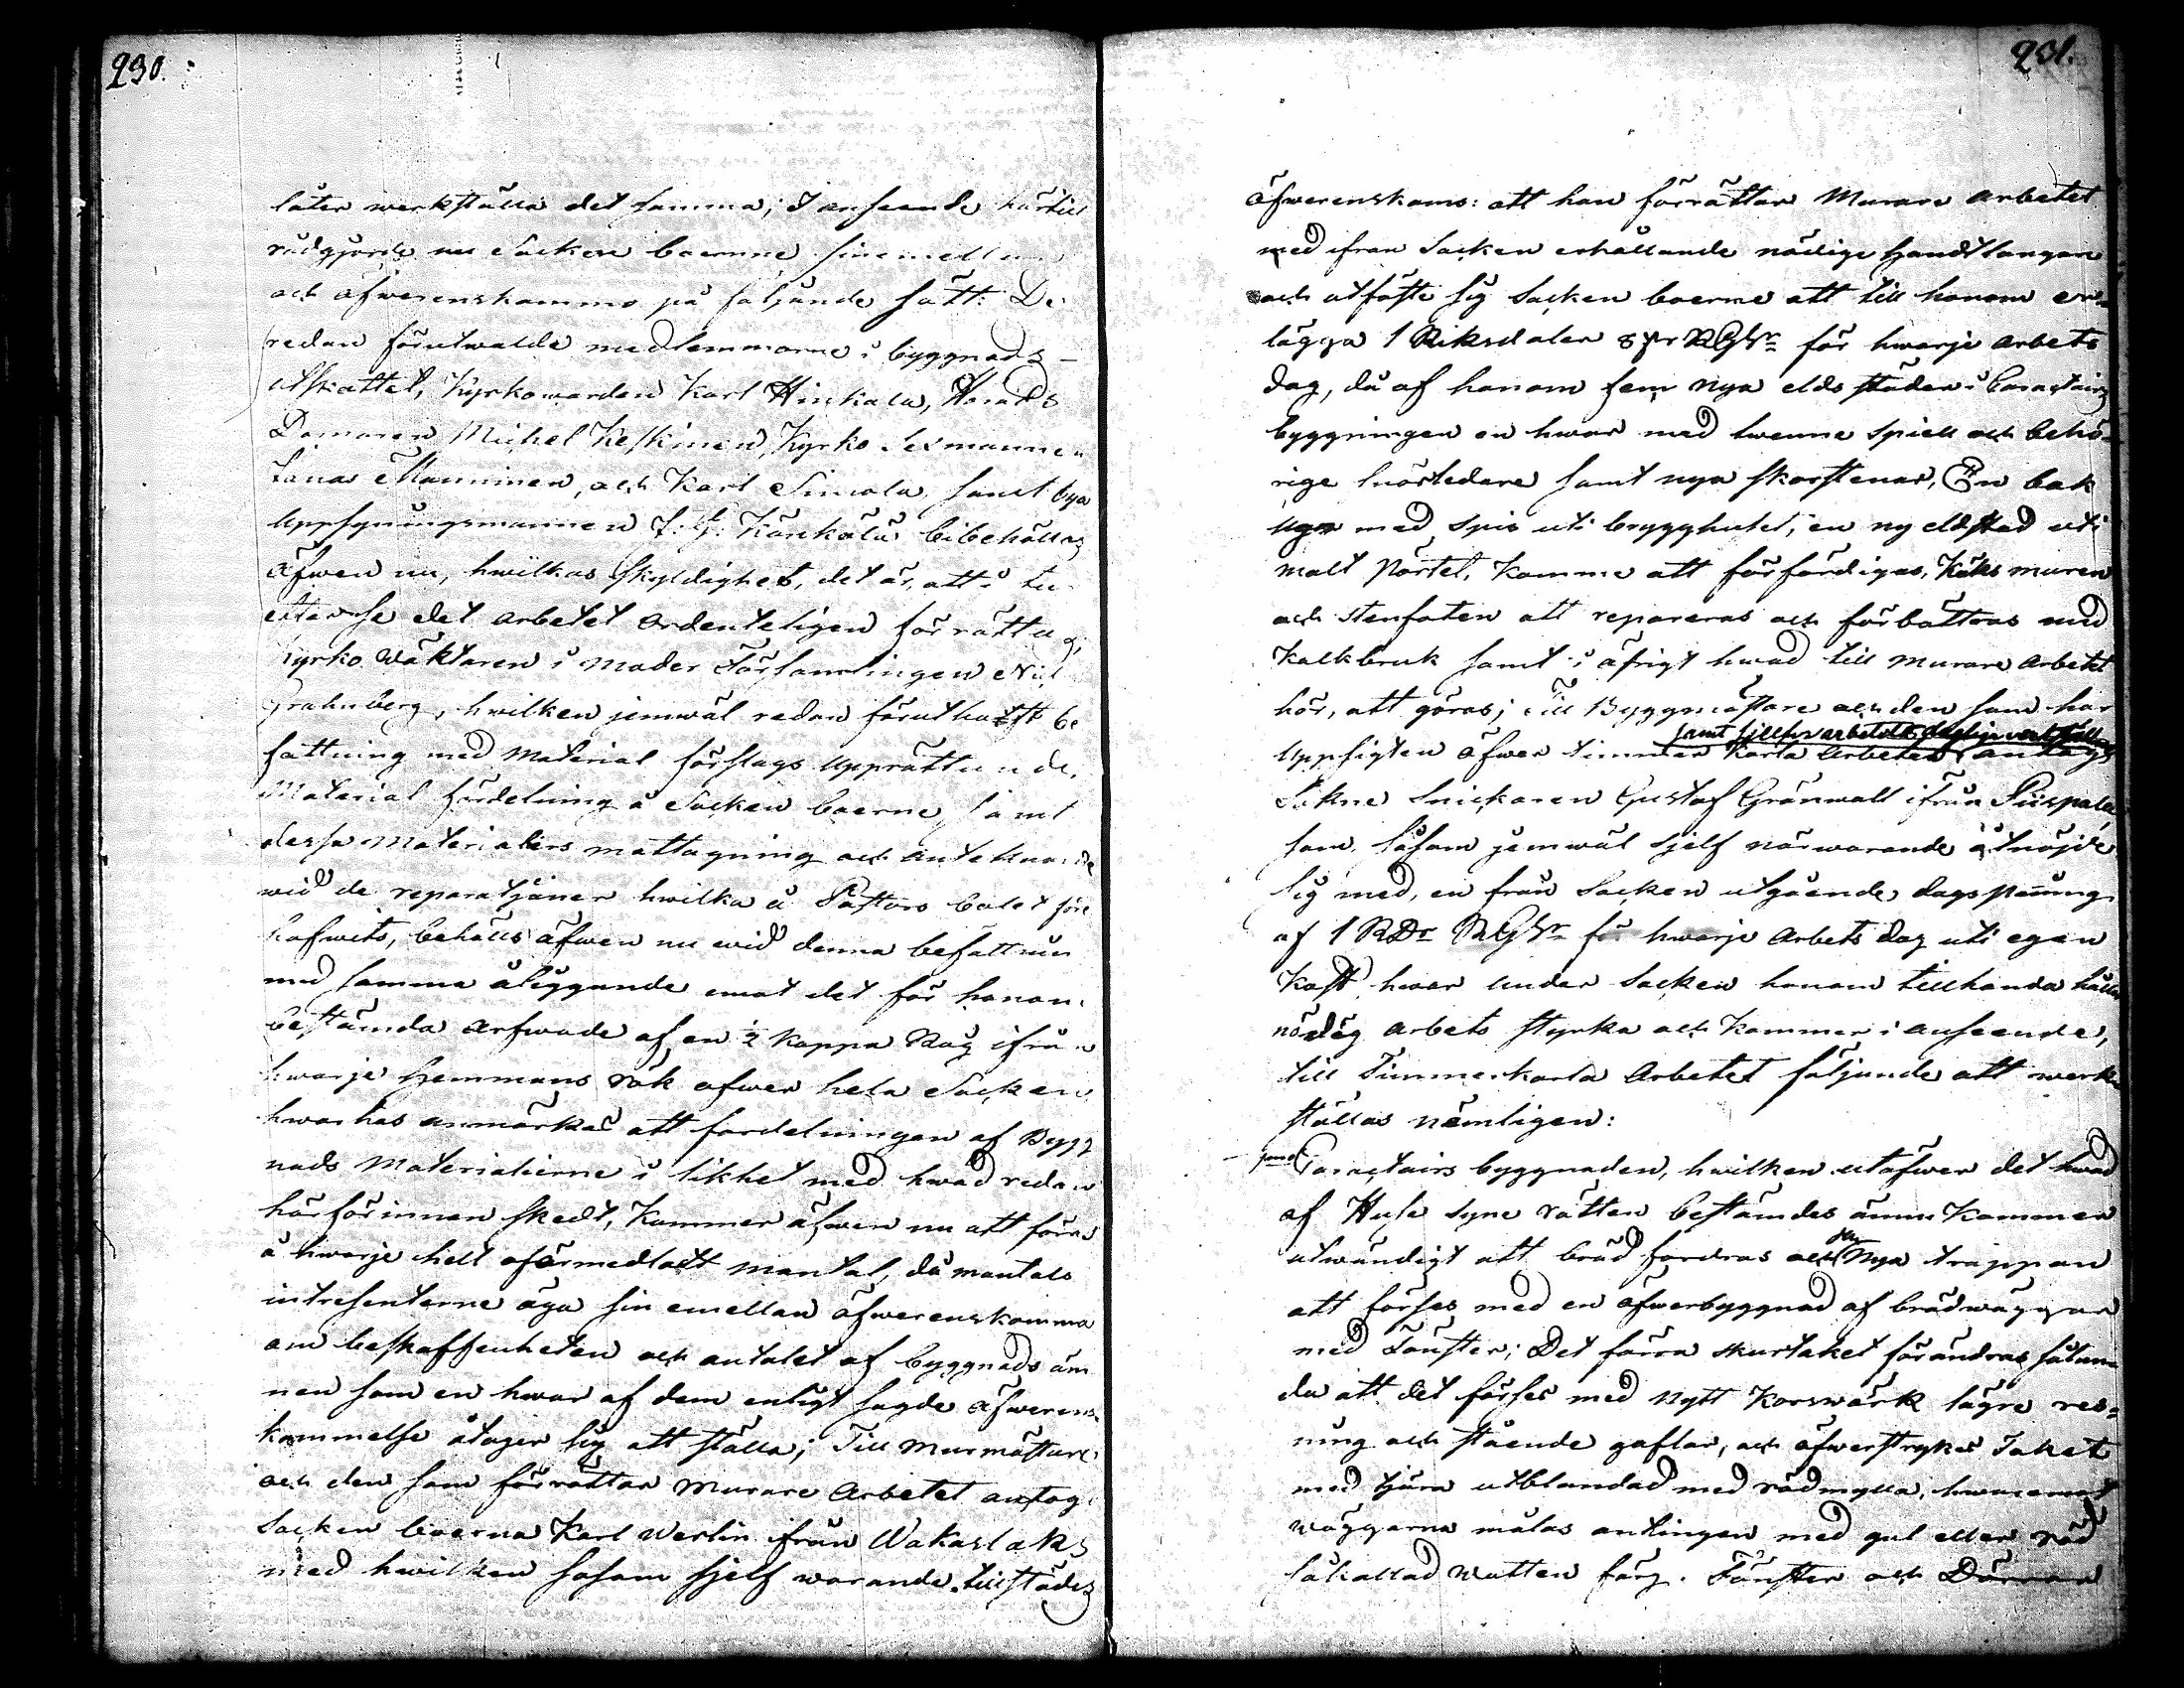 230.
låter werkställa det samma; i anseende härtill
rådgjorde nu Socken boerne sinemellan
och öfwerenskommo på följande sätt: De
redan förutwalde medlemmarne i byggnads-
utskottet, Kyrkowärden Karl Hinkala, Härads
Domaren Michel Keskinen, Kyrko Sexmannen
Jonas Manninen, och Karl Simola, samt bya
Uppsyningsmannen J. H. Känkälä bibehållas
äfwen nu, hwilkas skyldighet, det är, att
efterse det arbetet ordenteligen förrättas;
Kyrko Wäktaren i Moder Församlingen Nils
Grahnberg, hwilken jemwäl redan förut haft be
fattning med Material förslags upprättande,
Material fördelning å Socken boerne, samt
dessa Materialiers mottagning och anteknande
wid de reparationer hwilka å Pastors bolet före
hafwits, behålls äfwen nu wid denna befattning
med samma åliggande emot det för honom
bestämda arfwode af en ½ kappa Råg ifrån
hwarje Hemmans rök öfwer hela Socken
hwarhos anmärkes att fördelningen af Bygg
nads Materialierne i likhet med hwad redan
härförinnan skedt, Kommer äfwen nu att föras
å hwarje helt oförmedladt mantal, då mantals
intressenterne äga sin emellan öfwerenskomma
om beskaffenheten och antalet af byggnads äm
nen som en hwar af dem enligt sagde öfwerens
kommelse åtager sig att ställa; Till Murmästare
och den som förrättar Murare Arbetet antog
Socken boerna Karl Werlin ifrån Wakaslaks
med hwilken såsom sjelf warande tillstädes
231.
öfwerenskoms: att han förrättar Murare arbetet
med ifrån Socken erhållande nödige Handtlangare
och utfäste sig Socken boerne att till honom er=
lägga 1 Riksdaler RGSr för hwarje arbets
dag, då af honom fem nya eldstäder i Caractairs
byggningen en hwar med twenne spiell och behö
rige snörledare samt nya skorstenar, En bak
ugn med spis uti brygghuset, en ny eldstad uti
malt Pörtet, Komme att förfärdigas, Köks muren
och stenfoten att repareras och förbättras med
Kalkbruk samt i öfrigt hwad till murare arbetet
hör, att göras; till Byggmästare och den som har
samt sjelfwa arbetets daglige werkställ
uppsigten öfwer timmer Karla Arbetet antogs
Sokne Snickaren Gustaf Grönwall ifrån Piispala
som, såsom jemwäl sjelf närwarande åtnöjde
sig med, en från Socken utgående, dagspenning
af 1 RDr RGSr för hwarje Arbets dag uti egen
Kost, hwar under Socken honom tillhanda håller
nödig arbets styrka och Kommer i anseende,
till Timmerkarla Arbetet följande att werk
ställas nemligen:
1mo Caractairs byggnaden, hwilken utöfwer det hwad
af Huse Syne rätten bestämdes ännu Kommer
utwändigt att bräd fordras och Nya trappan
att förses med en öfwerbyggnad af brädwäggar
med Fönster; Det förra skurtaket förändras sålun
da att det förses med nytt Korswärk lägre res=
ning och stående gaflar, och öfwerstrykes Taket
med tjära utblandad med rödmylla, hwaremot
wäggarna målas antingen med gul eller röd
såkallad watten färg. Fönster och Dörrar